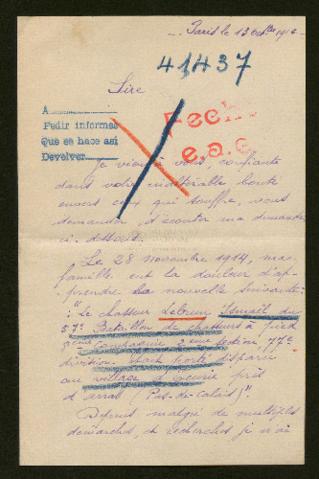 Paris le 13 Octbre 191
41437
Sire
A
Pedir informes
Que se hace así
Devolver
Fecha
e.a.c.
Je viens à vous, confiante
dans votre inaltérable bonté
envers ceux qui souffre, vous
demander d'écouter ma demande
ci-dessous.
Le 28 novembre 1914, ma
famille eut la douleur d'ap-
prendre la nouvelle suivante:
"Le chasseur Lebrun Ismaïl du
57e Bataillon de chasseurs à pied
8eme Compagnie 2eme section, 77e
division. Etait porté disparu
au village d' près
d'arras (Pas-de-Calais)".
Depuis malgré de multiples
démarches, et recherches je n'ai